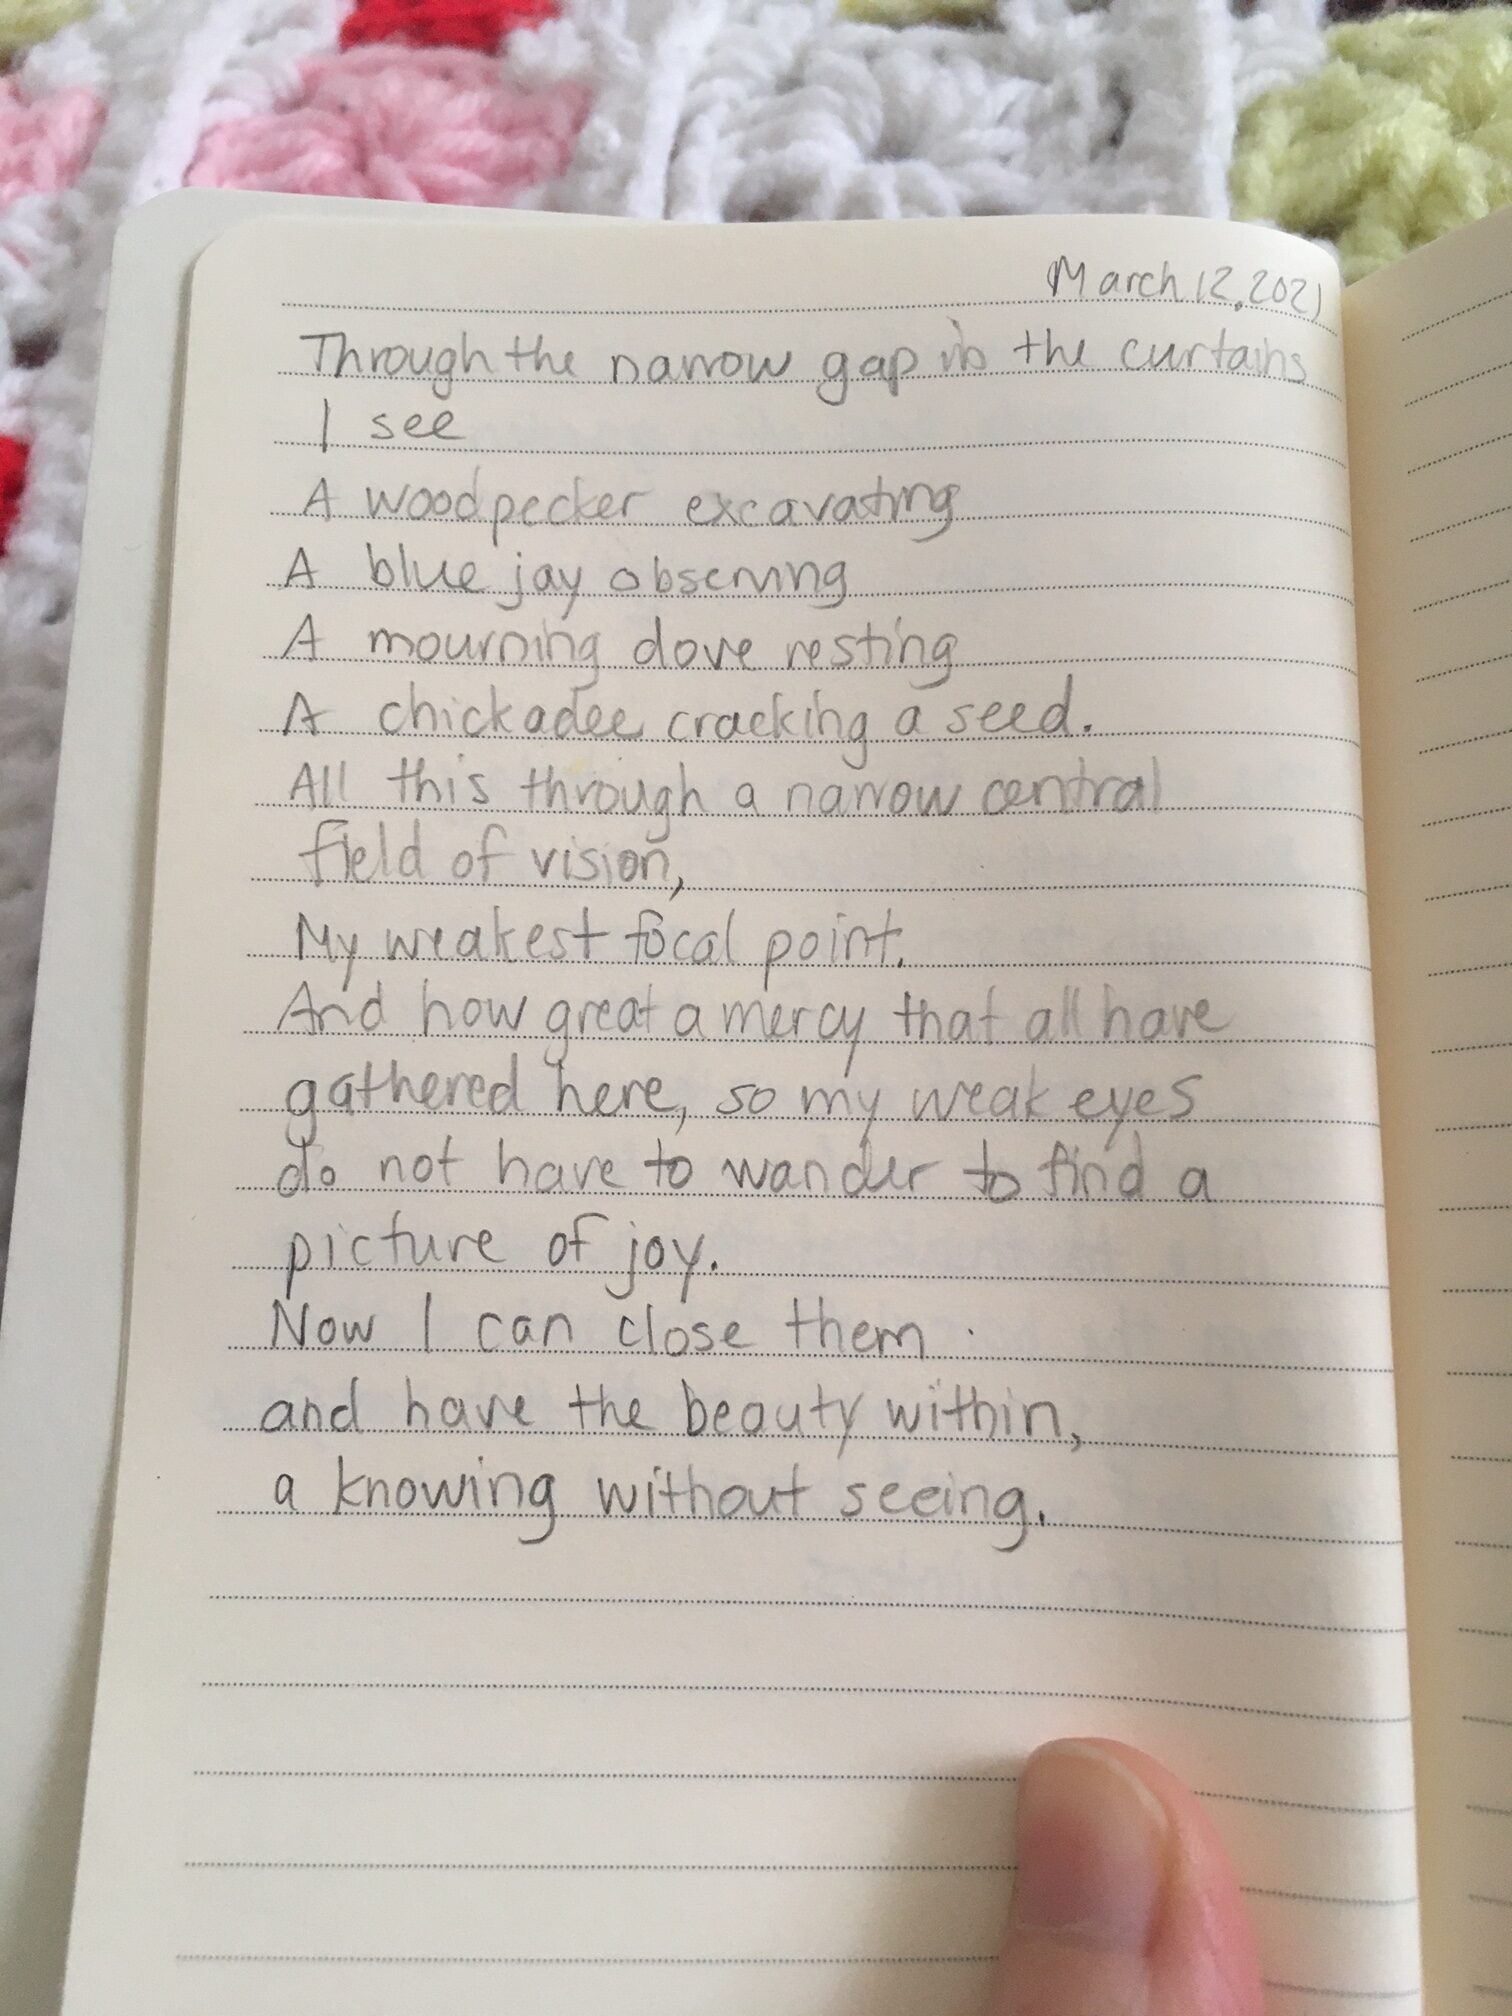 March 12, 2021
Through the narrow gap in the curtains
I see
A woodpecker excavating
A blue jay observing
A mourning dove resting
A chickadee cracking a seed.
All this through a narrow central
field of vision,
My weakest focal point.
And how great a mercy that all have
gathered here, so my weak eyes
do not have to wander to find a
picture of joy.
Now I can close them
and have the beauty within,
a knowing without seeing.